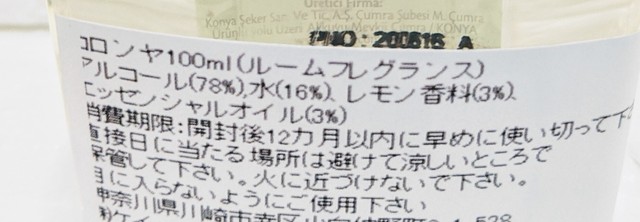 Üretici Firma:
Konya Şeker San. Ve Tic. A.Ş. Çumra Şubesi M. Çumra
KONYA
PNO: 200616 A
コロンヤ100ml(ルームフレグランス)
アルコール(78%),水(16%), レモン香料(3%),
エッセンシャルオイル(3%)
消費期限:開封後12カ月以内に早めに使い切って下
直接日に当たる場所は避けて涼しいところで
保管して下さい。火に近づけないで下さい。
目に入らないようにご使用下さい
神奈川県川崎市幸区